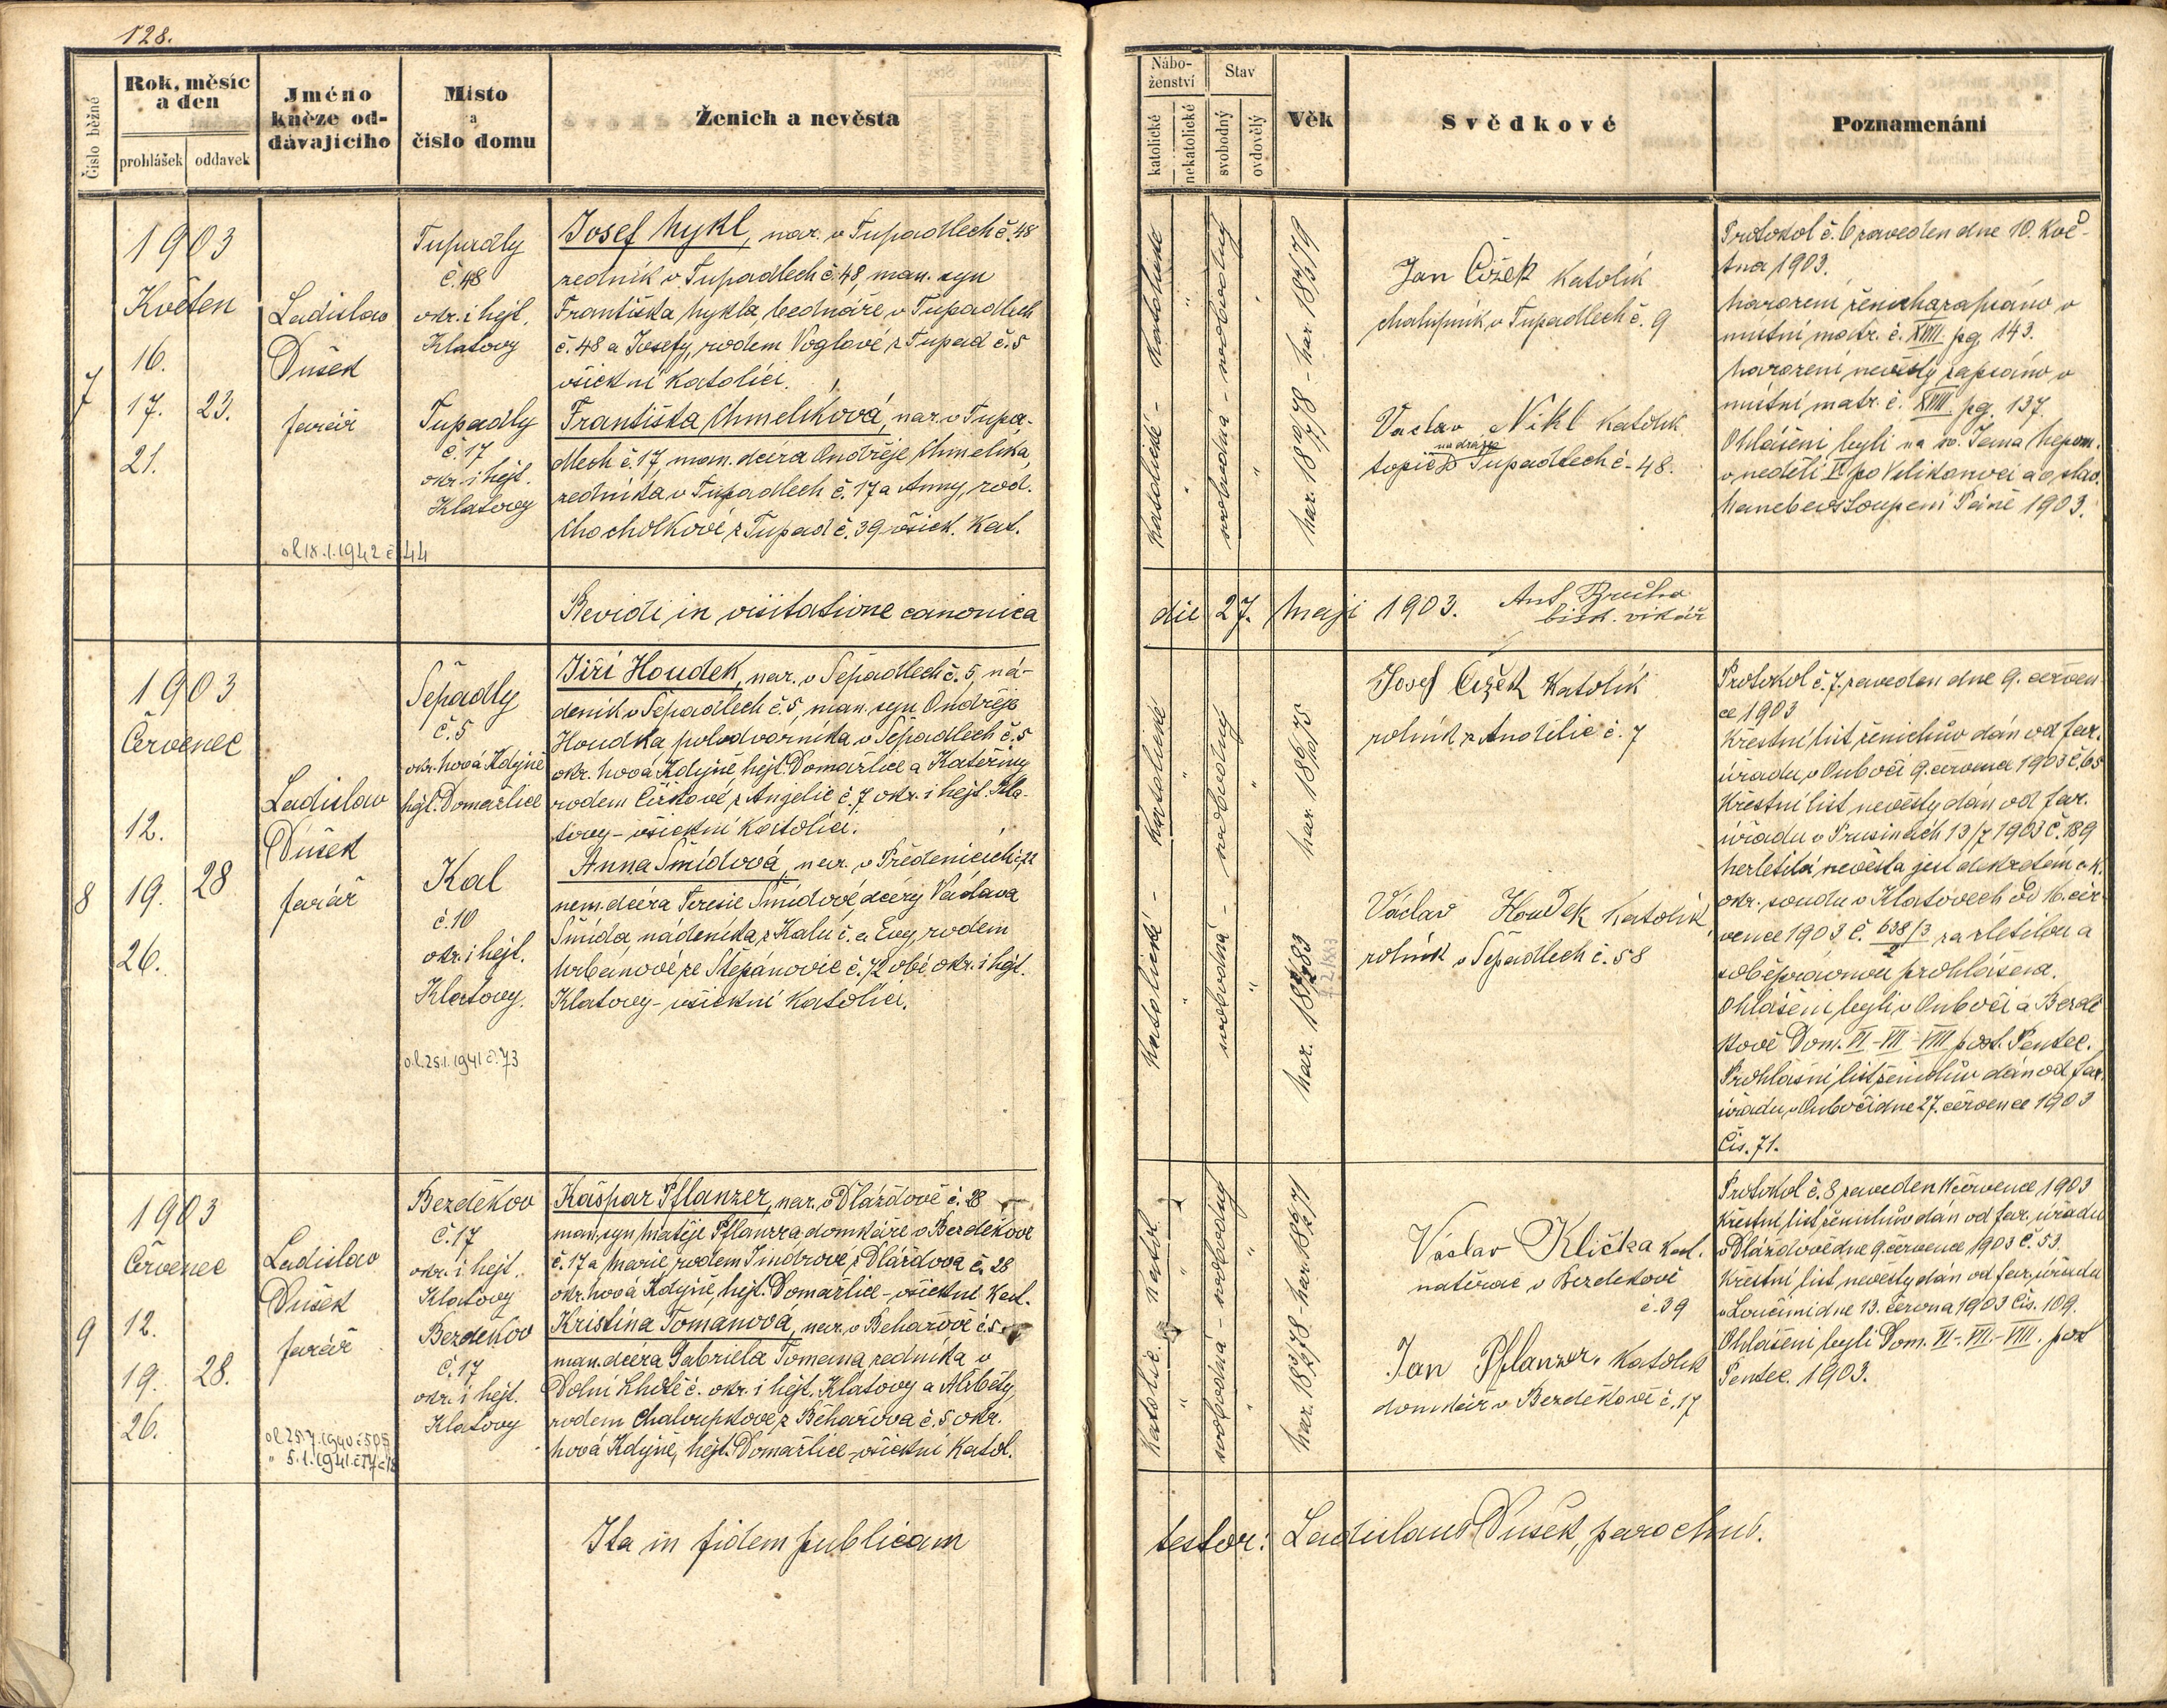 128.
Číslo běžné
Rok, měsíc
a den
prohlášek
oddavek
Jméno
kněze od-
dávajícího
Místo
a
číslo domu
Ženich a nevěsta
Nábo-
ženství
katolické
nekatolické
Stav
svobodný
ovdovělý
Věk
Svědkové
Poznamenání
7
1903
Květen
16.
17. 23.
21.
Ladislav
Dušek
farář
ol 18.1.1942 č 44
Tupadly
č. 48
okr. i hejt.
Klatovy
Tupadly
č. 17
okr. i hejt.
Klatovy
Josef Nykl, nar. v Tupadlech č. 48
zedník v Tupadlech č. 48, man. syn
Františka Nykla, bednáře v Tupadlech
č. 48 a Josefy, rodem Voglové z Tupad č. 5
všickni katolíci.
Františka Chmelíková, nar. v Tupa-
dlech č. 17, man. dcera Ondřeje Chmelíka
zedníka v Tupadlech č. 17 a Anny, rod.
Chocholkové z Tupad č. 39 všick. kat.
Katolické - Katolické
svobodná - svobodný
Jan Čížek Katolík
chalupník v Tupadlech č. 9
Vaclav Nikl Katolík
na dráze
topič Tupadlech č. 48.
Protokol č. 6 zaveden dne 10. Kvě-
tna 1903.
Narození ženicha zapsáno v
místní matr. č. XVIII. pg. 143.
Narození nevěsty zapsáno v
místní matr. č. XVIII. pg. 137.
Ohlášeni byli na sv. Jana Nepom.
v neděli V. po Velikonoci a o slav.
Nanebevstoupení Páně 1903.
Revidi in visitatione canonica
die 27. Maji 1903.
bisk. vikář
8
1903
Červenec
12.
19. 28.
26.
Ladislav
Dušek
farář
Sepadly
č. 5
okr. Nová Kdyně
hejt. Domažlice
Kal
č. 10
okr. i hejt.
Klatovy.
o.l. 25.1.1941 č. 73
Jiří Houdek, nar. v Sepadlech č. 5, ná-
deník v Sepadlech č. 5, man. syn Ondřeje
Houdka polodvorníka v Sepadlech č. 5
okr. Nová Kdyně, hejt. Domažlice a Kateřiny
rodem Čížkové z Angelic č. 7 okr. i hejt. Kla-
tovy - všickni katolíci.
Anna Šmídová, nar. v Předenicích č. 22
nem. dcera Teresie Šmídové dcery Václava
Šmída, nádeníka z Kalu č. a Evy, rodem
Urbanové ze Štěpánovic č. 72 obé okr. i hejt.
Klatovy - všickni katolíci.
Katolické - Katolické
svobodná - svobodný
Josef Čížek Katolík
rolník z Andělic č. 7
Václav Houdek Katolík
rolník v Sepadlech č. 58
Protokol č. 7. zaveden dne 9. červen-
ce 1903
Křestní list ženichův dán od far.
úřadu v Oubočí 9. června 1903 č. 65
Křestní list nevěsty dán od far.
úřadu v Prusinách 13/7 1903 č. 189
Nezletilá nevěsta jest dekretem c. k.
okr. soudu v Klatovech od 16. čer-
vence 1903 č. za zletilou a
soběprávnou prohlášena.
Ohlášeni byli v Oubočí a Bezdě-
kově Dom. VI - VII - VIII post. Pentec.
Prohlašní list ženichův dán od far.
úřadu v Oubočí dne 27. července 1903
Čís. 71.
9
1903
Červenec
12.
19. 28.
26.
Ladislav
Dušek
farář
ol 25.7.1940 č 505
Bezděkov
č. 17
okr. i hejt.
Klatovy
Bezděkov
č. 17
okr. i hejt.
Klatovy
Kašpar Pflanzer, nar. v Dlažďově č. 28
man. syn Matěje Pflanzra domkáře v Bezděkově
č. 17 a Marie, rodem Jindrové z Dlážďova č. 28
okr. Nová Kdyně, hejt. Domažlice - všickni kat.
Kristina Tomanová, nar. v Běhařově č. 5
man. dcera Gabriela Tomana zedníka v
Dolní Lhotě č. okr. i hejt. Klatovy a Alžběty,
rodem Chaloupkové z Běhařova č. 5 okr.
Nová Kdyně, hejt. Domažlice - všickni katol.
Katolic. Katol.
svobodná - svobodný
Václav Klička kat.
natěrač v Bezděkově
č. 39
Jan Pflanzer, katolík
domkář v Bezděkově č. 17
Protokol č. 8 zaveden července 1903
Křestní list ženichův dán od far. úřadu
v Dlážďově dne 9. července 1903 č. 53.
Křestní list nevěsty dán od far. úřadu
v Loučimi dne 13. června 1903 čís. 109.
Ohlášeni byli Dom. VI - VII - VIII. post
Pentec. 1903.
Ita in fidem publicam
testor: Ladislaus Dušek, parochus.